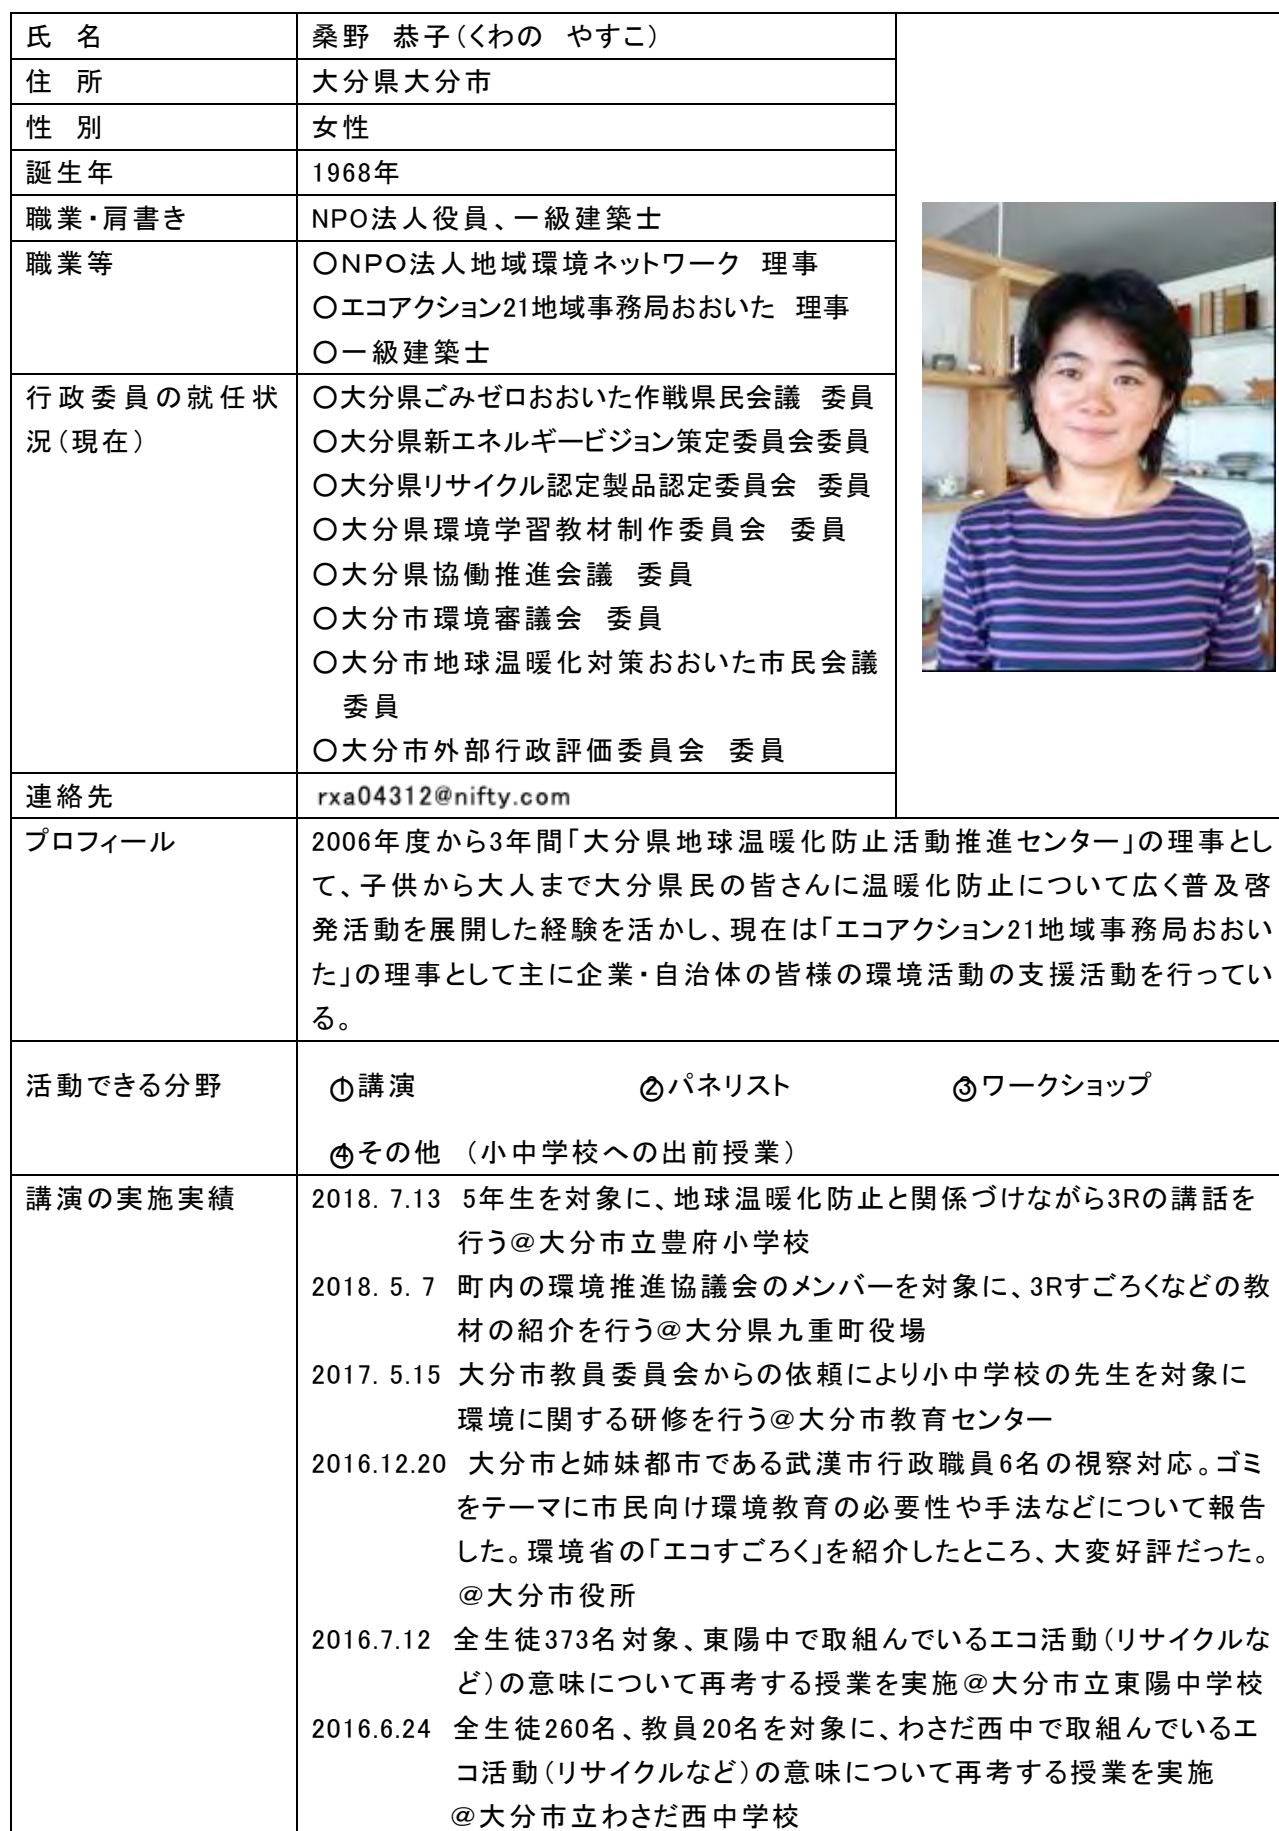 氏 名 桑野 恭子(くわの やすこ)
住 所 大分県大分市
性 別 女性
誕生年 1968年
職業・肩書き NPO法人役員、一級建築士
職業等 〇NPO法人地域環境ネットワーク 理事
〇エコアクション21地域事務局おおいた 理事
〇一級建築士
行政委員の就任状 〇大分県ごみゼロおおいた作戦県民会議 委員
況(現在) 〇大分県新エネルギービジョン策定委員会委員
〇大分県リサイクル認定製品認定委員会 委員
〇大分県環境学習教材制作委員会 委員
〇大分県協働推進会議 委員
〇大分市環境審議会 委員
〇大分市地球温暖化対策おおいた市民会議
委員
〇大分市外部行政評価委員会 委員
連絡先 rxa04312@nifty.com
プロフィール 2006年度から3年間「大分県地球温暖化防止活動推進センター」の理事とし
て、子供から大人まで大分県民の皆さんに温暖化防止について広く普及啓
発活動を展開した経験を活かし、現在は「エコアクション21地域事務局おおい
た」の理事として主に企業・自治体の皆様の環境活動の支援活動を行ってい
る。
活動できる分野 ①講演 ②パネリスト ③ワークショップ
④その他 (小中学校への出前授業)
講演の実施実績 2018. 7.13 5年生を対象に、地球温暖化防止と関係づけながら3Rの講話を
行う@大分市立豊府小学校
2018. 5. 7 町内の環境推進協議会のメンバーを対象に、3Rすごろくなどの教
材の紹介を行う@大分県九重町役場
2017. 5.15 大分市教員委員会からの依頼により小中学校の先生を対象に
環境に関する研修を行う@大分市教育センター
2016.12.20 大分市と姉妹都市である武漢市行政職員6名の視察対応。ゴミ
をテーマに市民向け環境教育の必要性や手法などについて報告
した。環境省の「エコすごろく」を紹介したところ、大変好評だった。
@大分市役所
2016.7.12 全生徒373名対象、東陽中で取組んでいるエコ活動(リサイクルな
ど)の意味について再考する授業を実施@大分市立東陽中学校
2016.6.24 全生徒260名、教員20名を対象に、わさだ西中で取組んでいるエ
コ活動(リサイクルなど)の意味について再考する授業を実施
@大分市立わさだ西中学校